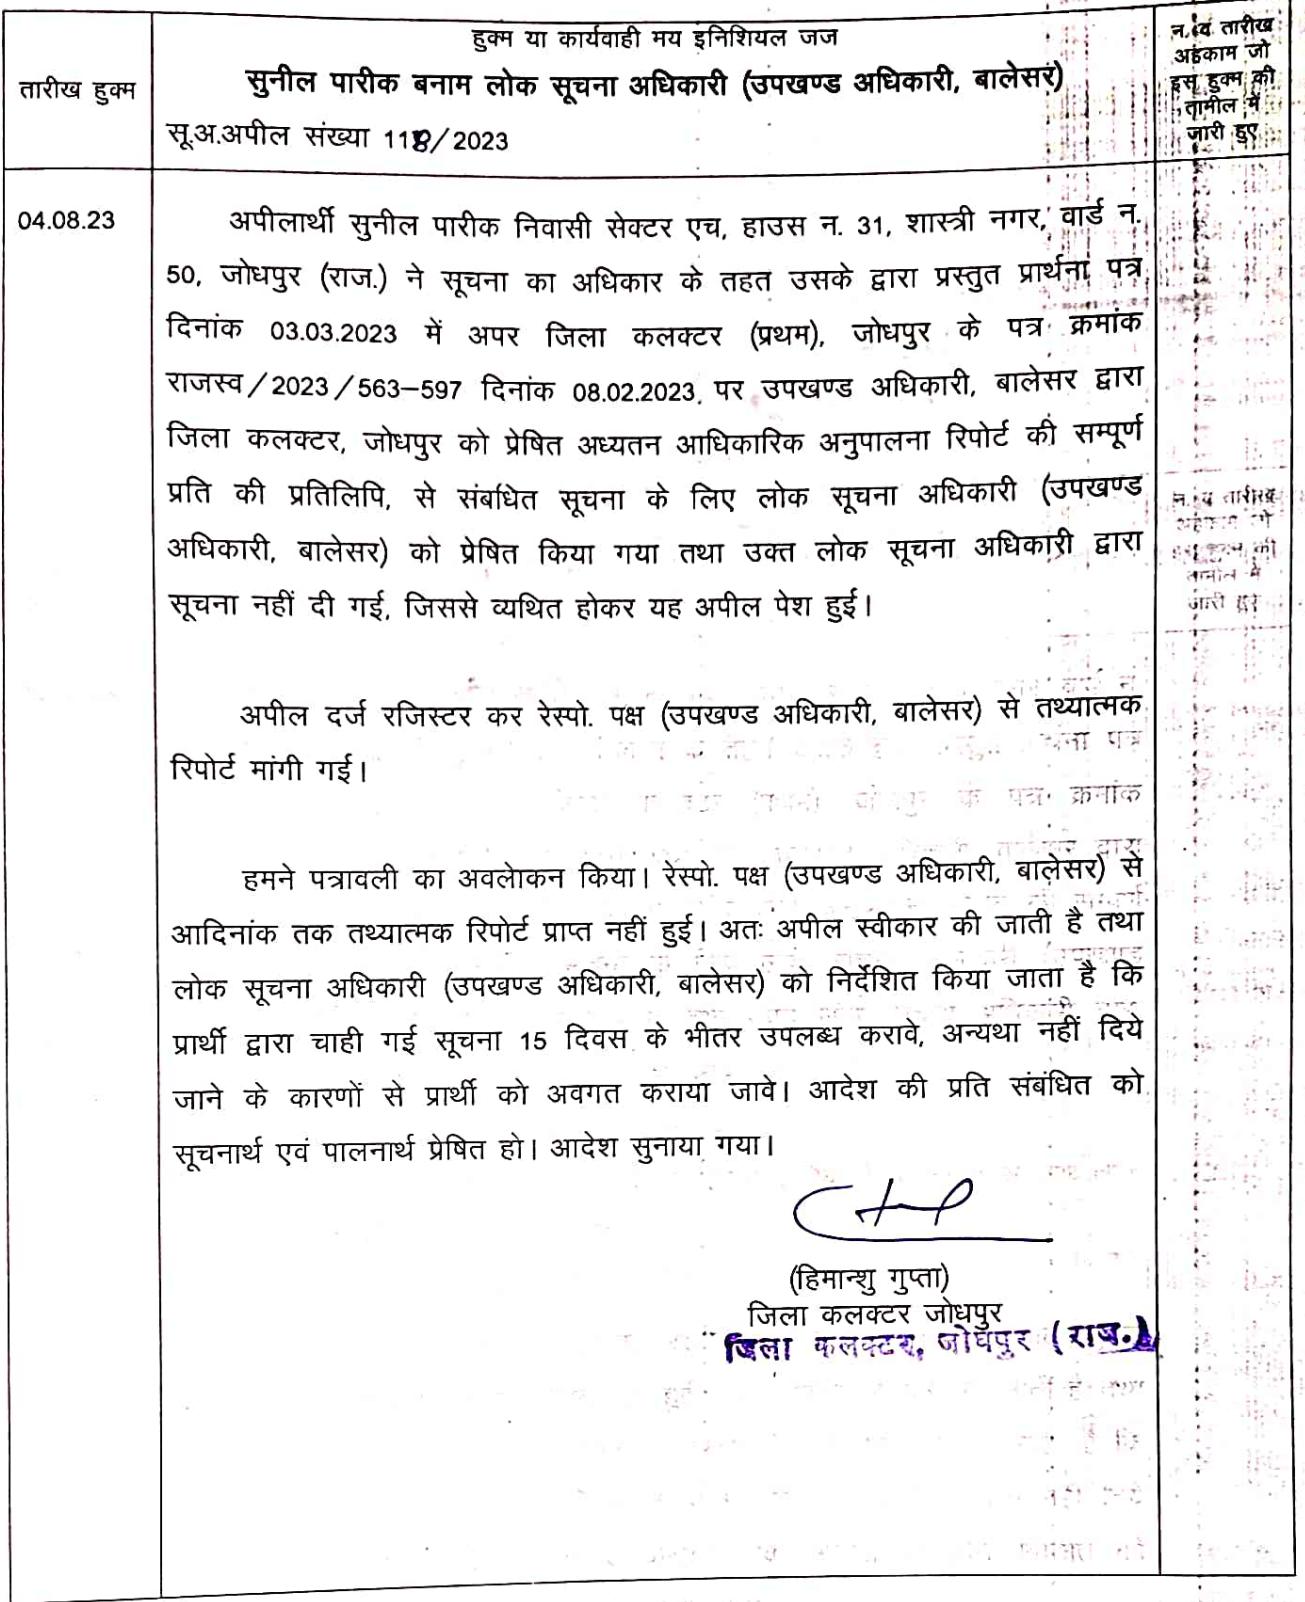 हुक्म या कार्यवाही मय इनिशियल जज
तारीख हुक्म
सुनील पारीक बनाम लोक सूचना अधिकारी (उपखण्ड अधिकारी, बालेसर)
सू.अ.अपील संख्या 118/2023
न. व तारीख
अहकाम जो
इस हुक्म की
तामील में
जारी हुए
04.08.23
अपीलार्थी सुनील पारीक निवासी सेक्टर एच, हाउस न. 31, शास्त्री नगर, वार्ड न.
50, जोधपुर (राज.) ने सूचना का अधिकार के तहत उसके द्वारा प्रस्तुत प्रार्थना पत्र
दिनांक 03.03.2023 में अपर जिला कलक्टर (प्रथम), जोधपुर के पत्र क्रमांक
राजस्व/2023/563–597 दिनांक 08.02.2023 पर उपखण्ड अधिकारी, बालेसर द्वारा
जिला कलक्टर, जोधपुर को प्रेषित अध्यतन आधिकारिक अनुपालना रिपोर्ट की सम्पूर्ण
प्रति की प्रतिलिपि, से संबधित सूचना के लिए लोक सूचना अधिकारी (उपखण्ड
अधिकारी, बालेसर) को प्रेषित किया गया तथा उक्त लोक सूचना अधिकारी द्वारा
सूचना नहीं दी गई, जिससे व्यथित होकर यह अपील पेश हुई।
अपील दर्ज रजिस्टर कर रेस्पो. पक्ष (उपखण्ड अधिकारी, बालेसर) से तथ्यात्मक
रिपोर्ट मांगी गई।
हमने पत्रावली का अवलोकन किया। रेस्पो. पक्ष (उपखण्ड अधिकारी, बालेसर) से
आदिनांक तक तथ्यात्मक रिपोर्ट प्राप्त नहीं हुई। अतः अपील स्वीकार की जाती है तथा
लोक सूचना अधिकारी (उपखण्ड अधिकारी, बालेसर) को निर्देशित किया जाता है कि
प्रार्थी द्वारा चाही गई सूचना 15 दिवस के भीतर उपलब्ध करावे, अन्यथा नहीं दिये
जाने के कारणों से प्रार्थी को अवगत कराया जावे। आदेश की प्रति संबंधित को
सूचनार्थ एवं पालनार्थ प्रेषित हो। आदेश सुनाया गया।
(हिमान्शु गुप्ता)
जिला कलक्टर जोधपुर
जिला कलक्टर, जोधपुर (राज.)